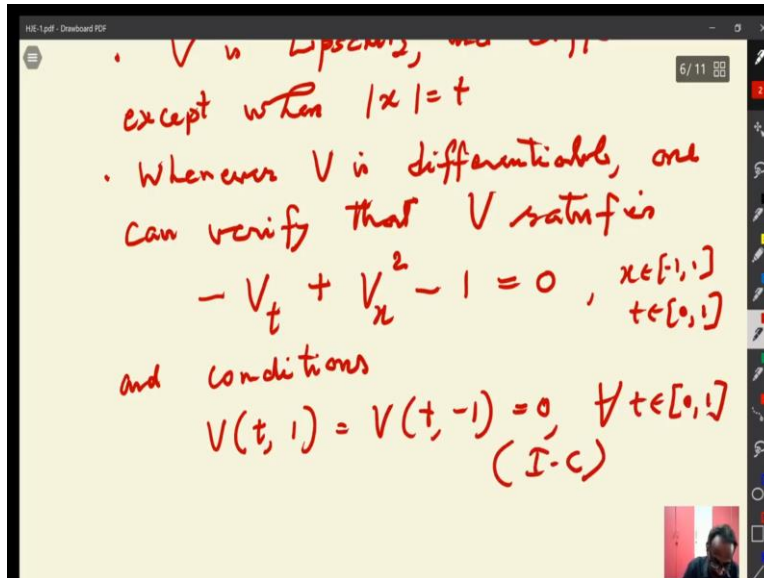 HJE-1.pdf - Drawboard PDF
6/11
. V is Lipschitz,
except when |x| = t
. Whenever V is differentiable, one
can verify that V satisfies
- V_t + V_x^2 - 1 = 0 , x ∈ [-1, 1]
t ∈ [0, 1]
and conditions
V(t, 1) = V(t, -1) = 0, ∀ t ∈ [0, 1]
(I-C)
2